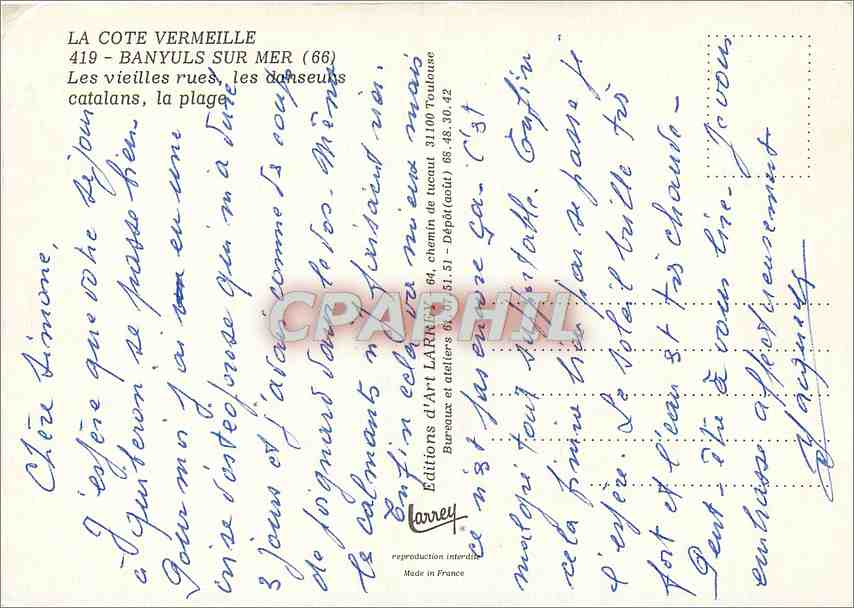 LA COTE VERMEILLE
419 - BANYULS SUR MER (66)
Les vieilles rues, les danseurs
catalans, la plage
Chère Simone,
J'espère que votre séjour
à Quiberon se passe bien.
Pour moi j'ai eu une
crise d'ostéoporose qui m'a duré
3 jours et j'avais comme des coups
de poignard dans le dos. Même
les calmants n'y faisaient rien.
Enfin cela va mieux mais
ce n'est pas encore ça. C'est
malgré tout supportable. Enfin
cela finira bien par se passer je
l'espère. Le soleil brille très
fort et l'eau est très chaude -
Peut-être à vous lire. Je vous
embrasse affectueusement
Jacqueline
Editions d'Art LARREY 64, chemin de tucaut 31100 Toulouse
Bureaux et ateliers 51.51 - Dépôt (août) 66.48.30.42
Larrey
reproduction interdite
Made in France
CPAPHIL